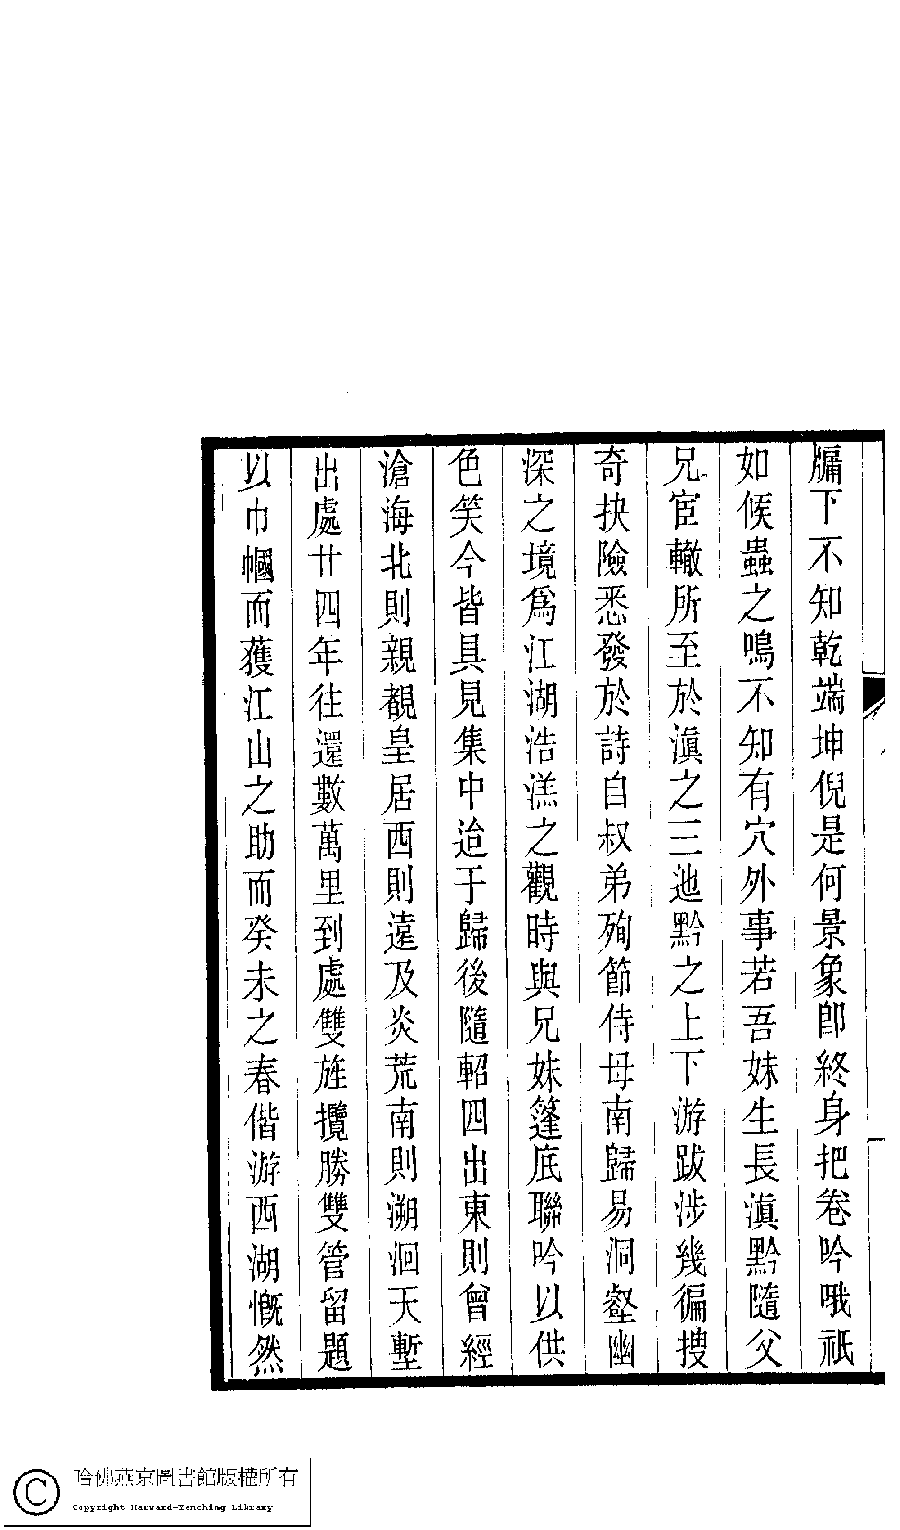 牖下不知乾端坤倪是何景象卽終身把卷吟哦祇
如候蟲之鳴不知有穴外事若吾妹生長滇黔隨父
兄宦轍所至於滇之三迆黔之上下游跋涉幾徧搜
奇抉險悉發於詩自叔弟殉節侍母南歸易洞壑幽
深之境爲江湖浩淼之觀時與兄妹篷底聯吟以供
色笑今皆具見集中迨于歸後隨軺四出東則曾經
滄海北則親覩皇居西則遠及炎荒南則溯洄天塹
出處廿四年往還數萬里到處雙旌攬勝雙管留題
以巾幗而獲江山之助而癸未之春偕游西湖慨然
哈佛燕京圖書館版權所有
Copyright Harvard-Yenching Library